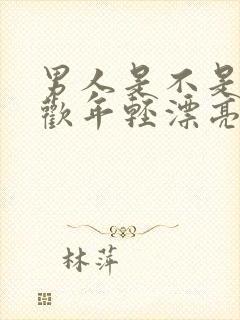 男人是不是
歡年輕漂亮
林萍